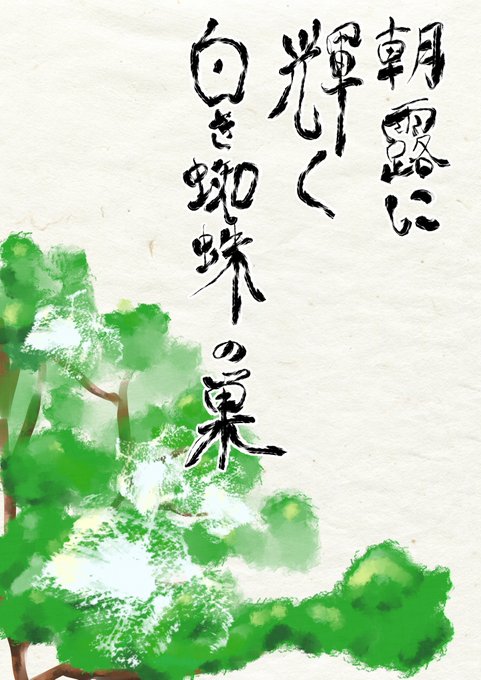 朝露に
輝く
白き蜘蛛の巣